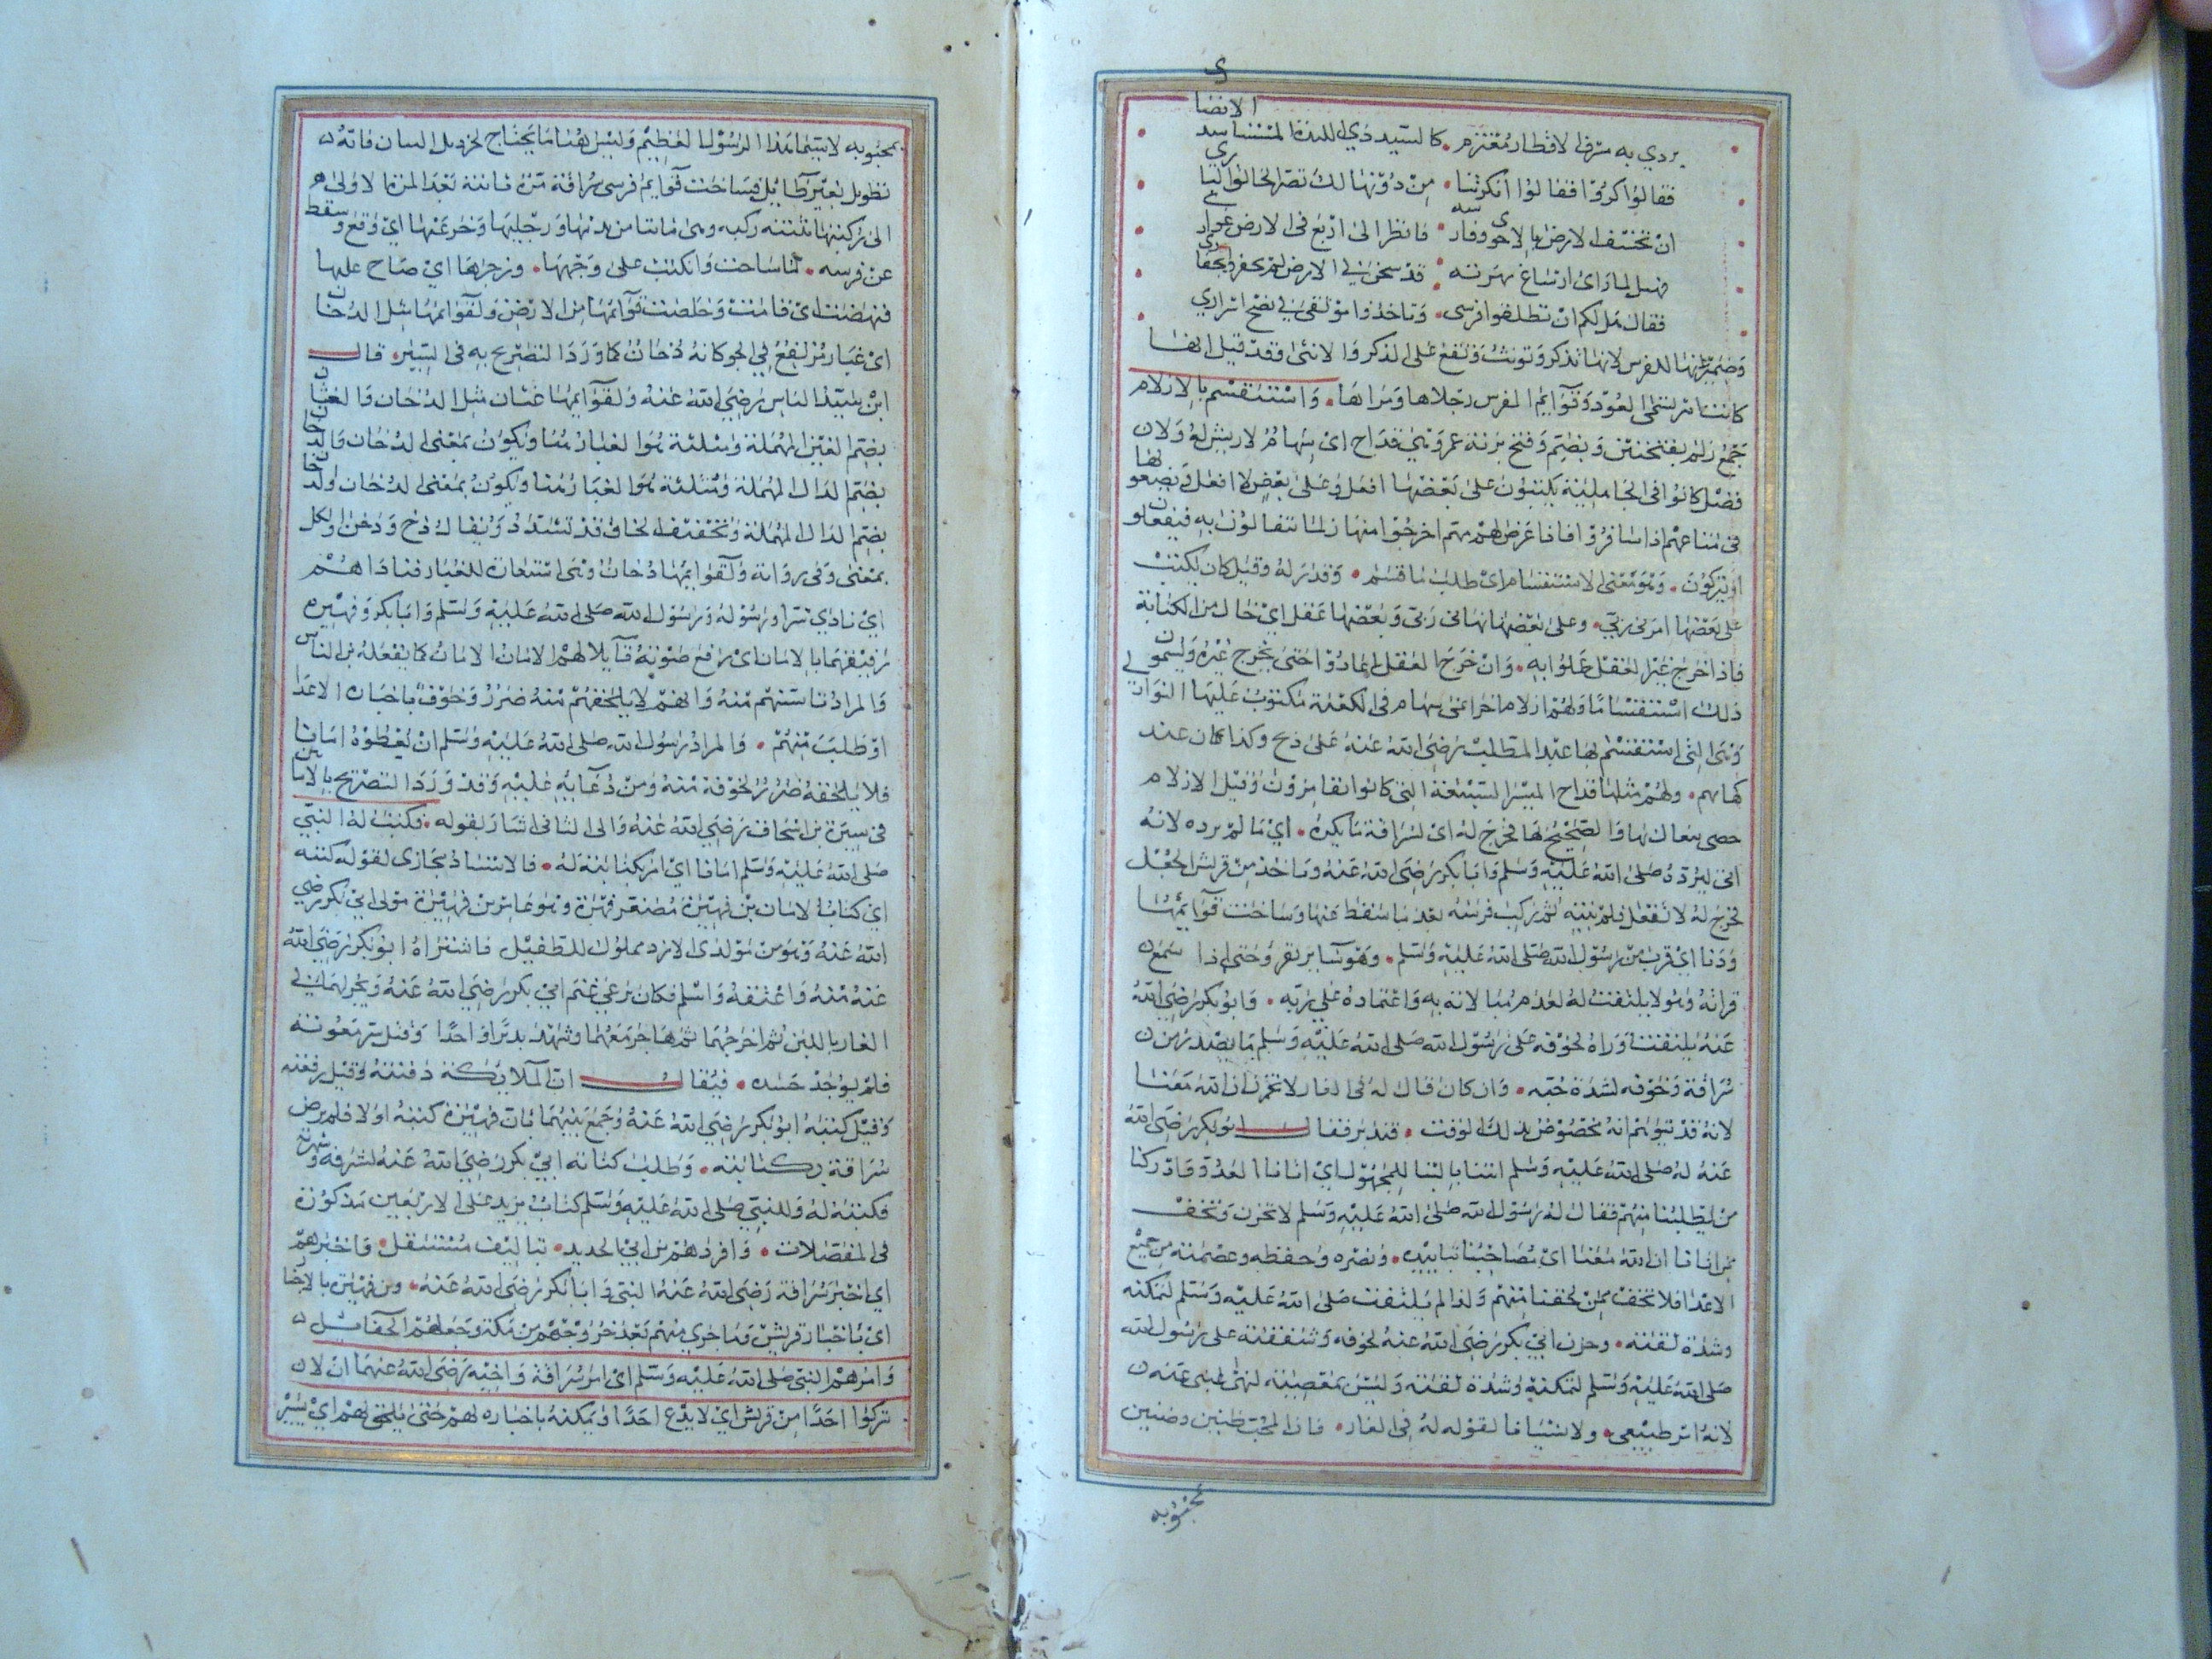 الانضاري
يردي به مشرف الاقطار معتزم كالسيد ذي اللبدة المستاسد
فقالوا كروا فقالوا انكرتنا من دونها لك نصر الخالق الباري
ان تخسف الارض بالاحوى وفارسه فانظر الى اربع في الارض غوار
فهيل لما راى ارساغ مهرته قد سخن في الارض لم يحفر بمحفار
فقال هل لكم ان تطلقوا فرسى وتاخذوا موثقى في نصح اسراري
وضمير انها للفرس لانها تذكر وتونث وتقع على الذكر والانثى فقد قيل انها
كانت انثى لقوله قوايم الفرس رجلاها ويداها واستقسم بالازلام
جمع زلم بفتحتين وبضم وفتح بزنة عمر وهي قداح اي سهام لا ريش لها ولا
فصل كانوا في الجاهلية يكتبون على بعضها افعل وعلى بعض لا افعل ويضعونها
في متاعهم اذا سافروا فاذا عرض لهم مهم اخرجوا منها زلما تفالون به فيفعلون
او يتركون وهو معنى الاستقسام اي طلب ما قسم وقدر له وقيل كان يكتب
على بعضها امرنى ربي وعلى بعضها نهانى ربي وبعضها غفل اي خال من الكتابة
فاذا خرج غير الغفل عملوا به وان خرج الغفل اعادوا حتى يخرج غيره ويسمون
ذلك استقساما ولهم ازلام اخرا عنى سهام في الكعبة مكتوب عليها النوازل
وهى التى استقسم بها عبد المطلب رضي الله عنه على ذبح وكذا كان عند
كهانهم ولهم مثلها قداح الميسر السبعة التى كانوا يتقامرون وقيل الازلام
حصى والصحيح لها فخرج له اى لسراقة ما يكره اي ما لم يرده لانه
اتى ليرده صلى الله عليه وسلم وابا بكر رضي الله عنه وياخذ من قريش الجعل
فخرج له لا تفعل فلم ينته ثم ركب فرسه بعد ما سقط عنها وساخت قوايمها
ودنا اي قرب من رسول الله صلى الله عليه وسلم وهو ساير يقرو حتى اذا سمع
قراته وهو لا يلتفت له لعدم مبالاته به واعتماده على ربه وابو بكر رضي الله
عنه يلتفت وراه لخوفه على رسول الله صلى الله عليه وسلم ما يصدر من
سراقة وخوفه لشدة حبه وان كان قال له في الغار لا تحزن ان الله معنا
لانه قد يتوهم انه مخصوص بذلك الوقت فقال ابو بكر رضي الله
عنه له صلى الله عليه وسلم اتينا بالبنا للمجهول اي اتانا العدو فادركنا
من يطلبنا منهم فقال له رسول الله صلى الله عليه وسلم لا تحزن وتخف
ممن اتانا ان الله معنا اي مصاحبنا بتاييده ونصره وحفظه وعصمته من جميع
الاعدا فلا تخف ممن لحقنا منهم ولذا لم يلتفت صلى الله عليه وسلم لتمكنه
وشدة ثقته وحزن ابي بكر رضي الله عنه لخوفه وشفقته على رسول الله
صلى الله عليه وسلم لتمكنه وشدة ثقته وليس بمعصية لنهى النبى عنه
لانه امر طبيعى ولا سيما لقوله له في الغار فان المحب ظنين وضنين
بمحبوبه
بمحبوبه لا سيما هذا الرسول العظيم وليس هنا ما يحتاج لخرد اللسان فانه
تطويل بغير طايل فساخت قوايم فرسى سراقة مرة ثانية بعد المرة الاولى
الى ركبتها تثنية ركبه وهى ما بين يديها ورجليها وخر عنها اي وقع وسقط
عن فرسه لما ساخت وانكبت على وجهها وزجرها اي صاح عليها
فنهضت اي قامت وخلصت قوايمها من الارض ولقوايمها مثل الدخان
اى غبار مرتفع في الجو كانه دخان كما ورد التصريح به في السير قال
ابن سيد الناس رضي الله عنه ولقوايمها عثان مثل الدخان والعثان
بضم العين المهملة ومثلثة هو الغبار هنا ويكون بمعنى الدخان والدخان
بضم الدال المهملة ومثلثة هو الغبار هنا ويكون بمعنى الدخان والدخان
بضم الدال المهملة وتخفيف الخا وقد تشدد ويقال دخ ودخن والكل
بمعنى وفي رواية ولقوايمها دخان وهى استعارة للغبار فناداهم
اي نادي سراقة رسوله رسول الله صلى الله عليه وسلم وابا بكر وفهيرة
رفيقهما بالامان اى رافع صوته قايلا لهم الامان الامان كما يفعله من الناس
والمراد تامينهم منه وانهم لا يلحقهم منه ضرر وخوف باخبار الاعدا
او طلب منهم والمراد رسول الله صلى الله عليه وسلم ان يعطوه امانا
فلا يلحقه ضرر لخوفه منه ومن دعايه عليه وقد ورد التصريح بالامان
في سيرة ابن اسحاق رضي الله عنه والى الثانى اشار بقوله فكتب له النبي
صلى الله عليه وسلم امانا اي امر بكتابته له فالاسناد مجازى لقوله كتبه
اي كتاب الامان بن فهيرة مصغر فهرة وهو عامر بن فهيرة مولى ابي بكر رضي
الله عنه وهو من مولدى الازد مملوك للطفيل فاشتراه ابو بكر رضي الله
عنه منه واعتقه واسلم فكان يرعى غنم ابي بكر رضي الله عنه ويجى لهما في
الغار باللبن ثم اخرجهما ثم هاجر معهما وشهد بدرا واحدا وقتل ببئر معونة
فلم يوجد جسده فيقال ان الملايكة دفنته وقيل رفعته
وقيل كتبه ابو بكر رضي الله عنه وجمع بينهما بان فهيرة كتبه اولا فلم يرض
سراقة بكتابته وطلب كتابة ابي بكر رضي الله عنه لشرفه وشهرته
فكتبه له وللنبي صلى الله عليه وسلم كتاب يزيد على الاربعين مذكورة
في المفصلات وافردهم ابن ابي الحديد بتاليف مستقل واخبرهم
اي اخبر سراقة رضي الله عنه النبى وابا بكر رضي الله عنه وبن فهيرة بالاخبار
اي باخبار قريش وما جرى منهم بعد خروجهم من مكة وجعلهم الجعايل
وامرهم النبى صلى الله عليه وسلم اى امر سراقة واخيه رضي الله عنهما ان لا
تركوا احدا من قريش اي لا يدع احدا ويمكنه باخباره لهم حتى يلحق بهم اي يسير